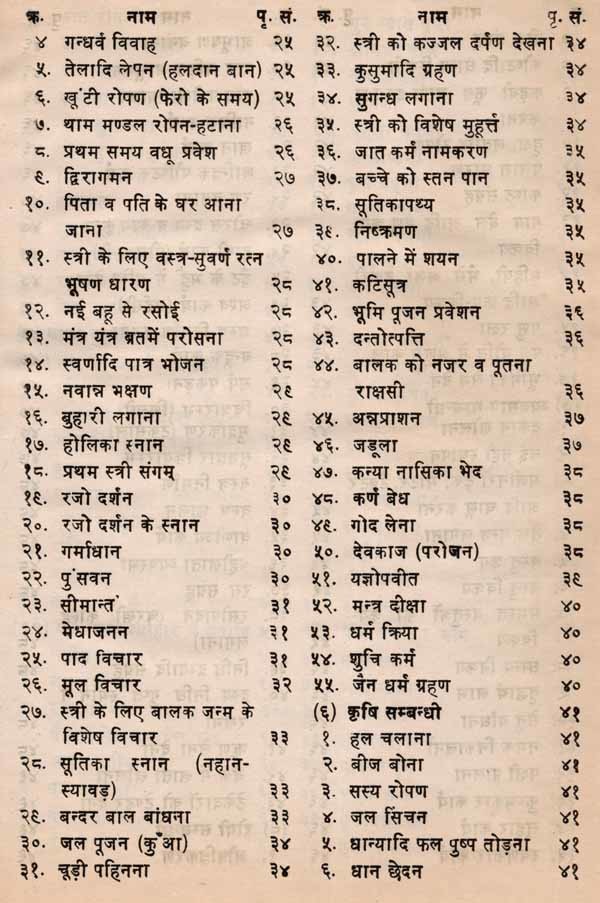 क्र. नाम पृ. सं.
४ गन्धर्व विवाह २५
५. तेलादि लेपन (हलदान बान) २५
६. खूंटी रोपण (फेरो के समय) २५
७. थाम मण्डल रोपन-हटाना २६
८. प्रथम समय वधू प्रवेश २६
९. द्विरागमन २७
१०. पिता व पति के घर आना
जाना २७
११. स्त्री के लिए वस्त्र-सुवर्ण रत्न
भूषण धारण २८
१२. नई बहू से रसोई २८
१३. मंत्र यंत्र ब्रतमें परोसना २८
१४. स्वर्णादि पात्र भोजन २८
१५. नवान्न भक्षण २९
१६. बुहारी लगाना २९
१७. होलिका स्नान २९
१८. प्रथम स्त्री संगम् २९
१९. रजो दर्शन ३०
२०. रजो दर्शन के स्नान ३०
२१. गर्माधान ३०
२२. पुंसवन ३०
२३. सीमान्तं ३१
२४. मेधाजनन ३१
२५. पाद विचार ३१
२६. मूल विचार ३२
२७. स्त्री के लिए बालक जन्म के
विशेष विचार ३३
२८. सूतिका स्नान (नहान-
स्यावड़) ३३
२९. बन्दर बाल बांधना ३३
३०. जल पूजन (कुँआ) ३४
३१. चूड़ी पहिनना ३४
क्र. नाम पृ. सं.
३२. स्त्री को कज्जल दर्पण देखना ३४
३३. कुसुमादि ग्रहण ३४
३४. सुगन्ध लगाना ३४
३५. स्त्री को विशेष मुहूर्त्त ३४
३६. जात कर्म नामकरण ३५
३७. बच्चे को स्तन पान ३५
३८. सूतिकापथ्य ३५
३९. निष्क्रमण ३५
४०. पालने में शयन ३५
४१. कटिसूत्र ३५
४२. भूमि पूजन प्रवेशन ३६
४३. दन्तोत्पत्ति ३६
४४. बालक को नजर व पूतना
राक्षसी ३६
४५. अन्नप्राशन ३७
४६. जडूला ३७
४७. कन्या नासिका भेद ३८
४८. कर्ण बेध ३८
४९. गोद लेना ३८
५०. देवकाज (परोजन) ३८
५१. यज्ञोपवीत ३९
५२. मन्त्र दीक्षा ४०
५३. धर्म क्रिया ४०
५४. शुचि कर्म ४०
५५. जैन धर्म ग्रहण ४०
(६) कृषि सम्बन्धी ४१
१. हल चलाना ४१
२. बीज बोना ४१
३. सस्य रोपण ४१
४. जल सिंचन ४१
५. धान्यादि फल पुष्प तोड़ना ४१
६. धान छेदन ४१